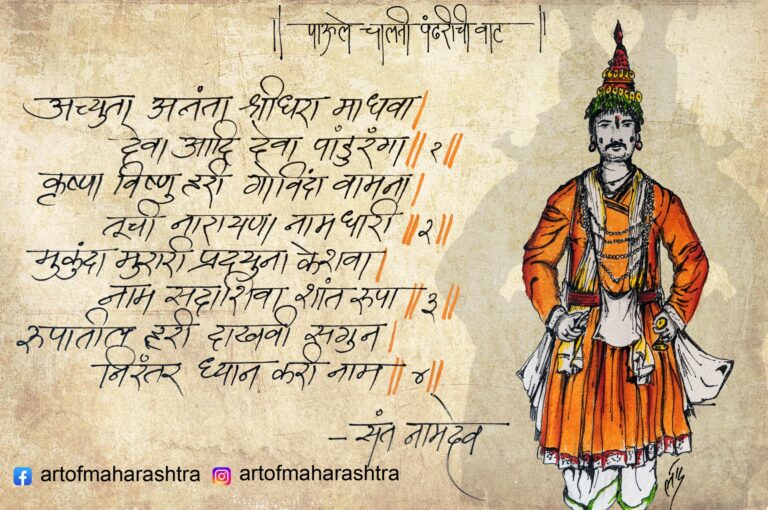 || पाऊले चालती पंढरीची वाट ||
अच्युता अनंता श्रीधरा माधवा|
देवा आदि देवा पांडुरंगा ||१||
कृष्णा विष्णु हरी गोविंदा वामना|
तूची नारायणा नामधारी ||२||
मुकुंदा मुरारी प्रद्युना केशवा|
नाम सदाशिवा शांत रुपा ||३||
रूपातील हरी दाखवी सगुन|
निरंतर ध्यान करी नाम ||४||
- संत नामदेव
artofmaharashtra artofmaharashtra